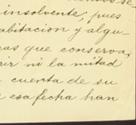 insolvente, pues
abitación y algu-
as que conserva,
rir ni la mitad
cuenta de su
esa fecha han